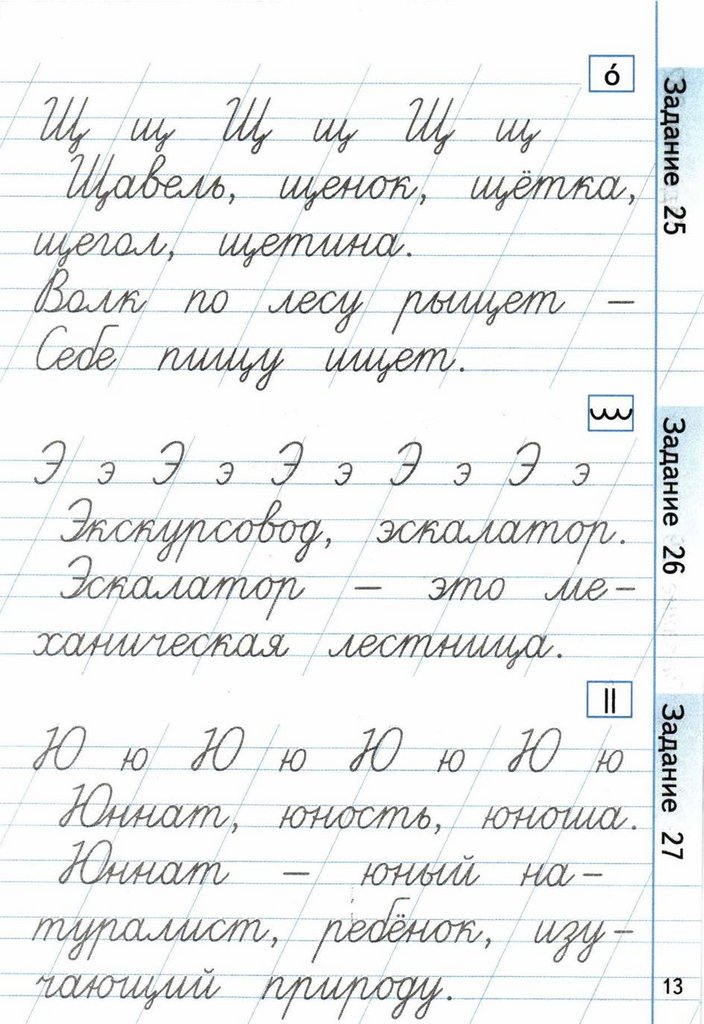 ó
Задание 25
Щ щ Щ щ Щ щ
Щавель, щенок, щётка,
щегол, щетина.
Волк по лесу рыщет –
Себе пищу ищет.
Задание 26
Э э Э э Э э Э э Э э
Экскурсовод, эскалатор.
Эскалатор – это ме-
ханическая лестница.
Задание 27
Ю ю Ю ю Ю ю Ю ю
Юннат, юность, юноша.
Юннат – юный на-
туралист, ребёнок, изу-
чающий природу.
13